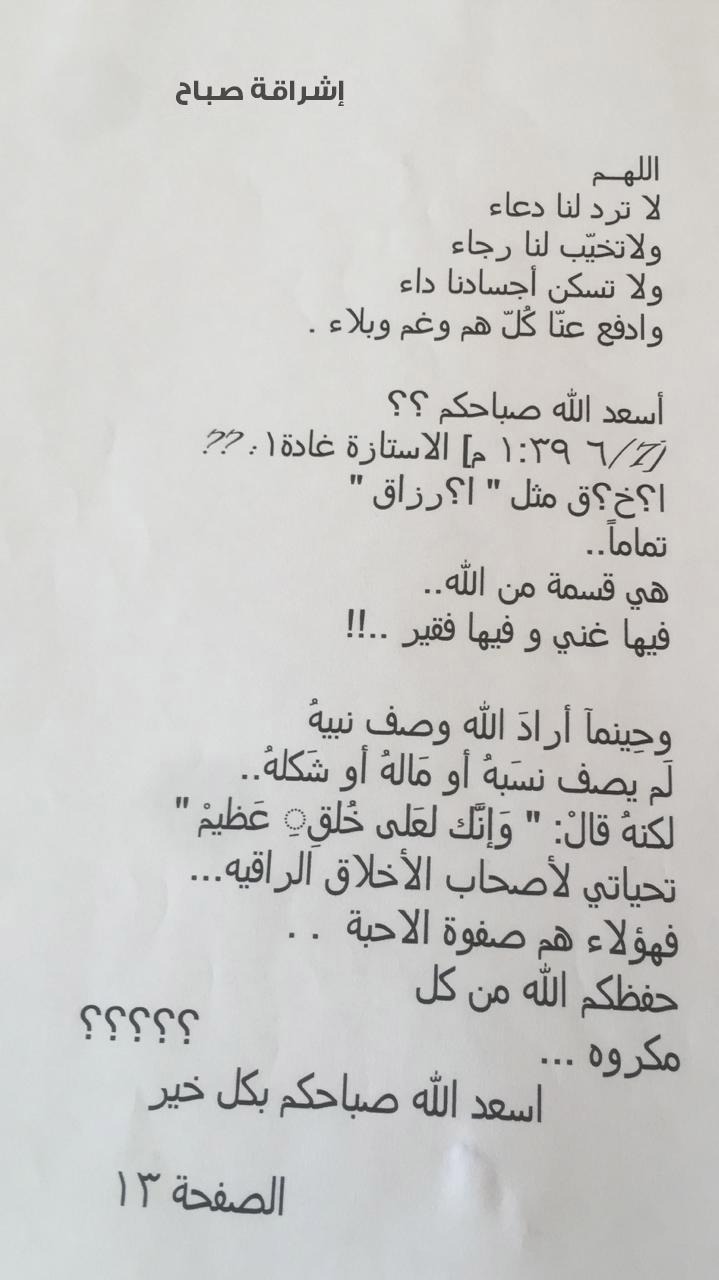 إشراقة صباح
اللهــم
لا ترد لنا دعاء
ولاتخيّب لنا رجاء
ولا تسكن أجسادنا داء
وادفع عنّا كُلّ هم وغم وبلاء .
أسعد الله صباحكم ؟؟
[7/٦ ١:٣٩ م] الاستازة غادة١: ??
ا؟خ؟ق مثل " ا؟رزاق "
تماماً..
هي قسمة من الله..
فيها غني و فيها فقير ..!!
وحِينمآ أرادَ الله وصف نبيهُ
لَم يصف نسَبهُ أو مَالهُ أو شَكلهُ..
لكنهُ قالْ: " وَإنَّك لعَلى خُلقِ ِ عَظيمْ "
تحياتي لأصحاب الأخلاق الراقيه...
فهؤلاء هم صفوة الاحبة . .
حفظكم الله من كل
مكروه ... ؟؟؟؟؟
اسعد الله صباحكم بكل خير
الصفحة ١٣